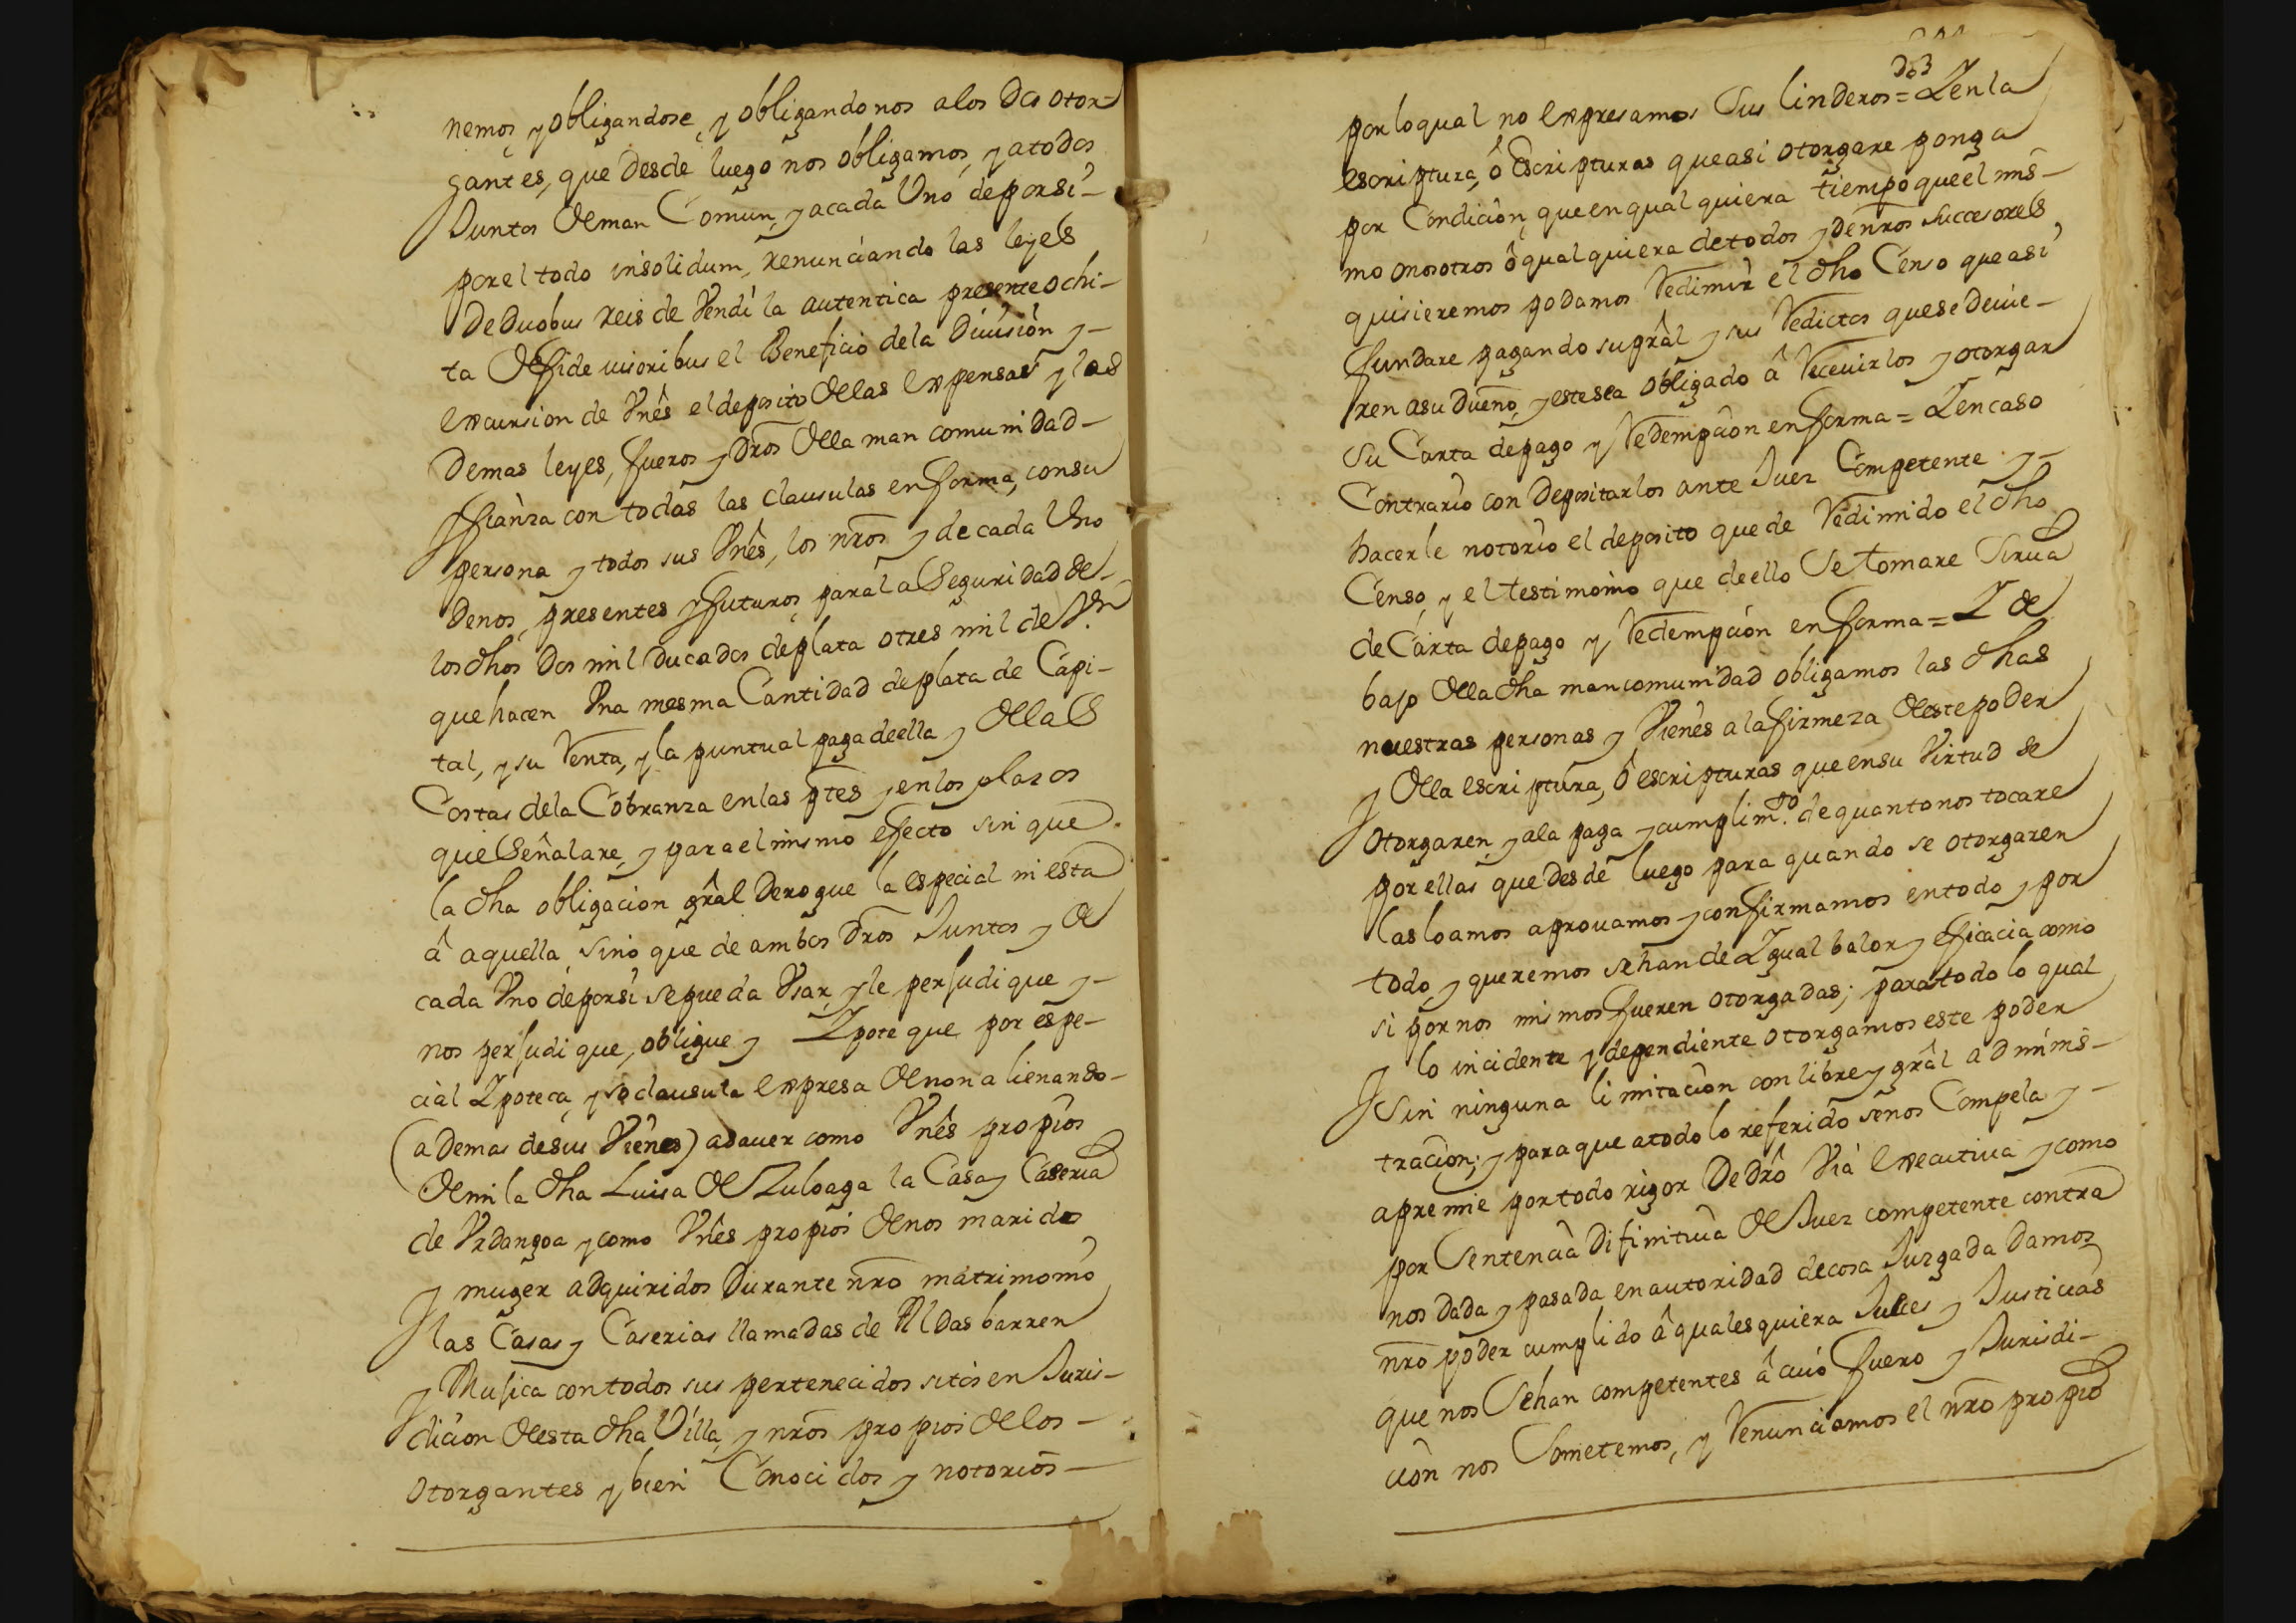 nemos, y obligandose, y obligandonos a los Dos otor-
gantes, que desde luego nos obligamos, y a todos
Juntos de man Comun, y acada Uno de por si-
por el todo insolidum, renunciando las leyes
De Duobus reis de Vendi la autentica presente ochi-
ta de fide uisoribus el Beneficio de la Diuision y-
excursion de Vnês el deposito de las expensas y las
Demas leyes, fueros y Dros de la man comunidad-
y fianza con todas las clausulas en forma, con su
persona y todos sus Vnês, los nros y de cada Uno
de nos, presentes y futuros, para la Seguridad de-
los dhos Dos mil Ducados de plata o tres mil de Vn
que hacen Vna mesma Cantidad de plata de Capi-
tal, y su Renta, y la puntual paga de ella y de las
Costas de la Cobranza en las ptes y en los plazos
que Señalare, y para el mismo efecto sin que
la dha obligacion grâl Derogue la especial ni esta
â aquella, sino que de ambos Dros Juntos y de
cada Vno de por si se pueda Vsar, y le perjudique y-
nos perjudique, obligue y Ypoteque por espe-
cial Ypoteca, y so clausula expresa de non alienando-
(ademas de sus Vienes) a sauer como Vnês propios
de mi la dha Luisa de Zuloaga la Casa y Caseria
de Vrdangoa y como Vnês propios de nos marido
y muger adquiridos Durante nro matrimonio
las Casas y Caserias llamadas de Aldasbarren
y Musica con todos sus pertenecidos sitos en Juris-
dicion de esta dha Villa, y nros propios de los-
otorgantes y bien Conocidos y notorios-
203
por lo qual no expresamos Sus linderos = Y en la
escriptura, ô Escripturas que asi otorgare ponga
por Condicion, que en qual quiera tiempo que el mis-
mo o nosotros ô qual quiera de todos y de nros succesores
quisieremos podamos Redimir el dho Censo que asi
fundare pagando su prâl y sus Redictos que se Deuie-
ren a su Dueño, y este sea obligado â Receuirlos y otorgar
Su Carta de pago y Redempcion en forma = Y en caso
Contrario con Depositarlos ante Juez Competente y-
hacerle notorio el deposito quede Redimido el dho
Censo, y el testimonio que de ello Se tomare Sirua
de Carta de pago y Redempcion en forma = Y de
bajo de la dha mancomunidad obligamos las dhas
nuestras personas y Vienes a la firmeza de este poder
y de la escriptura, ô escripturas que en su Virtud se
otorgaren, y a la paga y cumplimto. de quanto nos tocare
por ellas que desde luego para quando se otorgaren
las loamos aprouamos y confirmamos en todo y por
todo, y queremos sehan de Ygual balor y eficacia como
si por nos mismos fueren otorgadas; para todo lo qual
y lo incidente y dependiente otorgamos este poder
Sin ninguna limitacion con libre y grâl adminis-
tracion; y para que a todo lo referido se nos Compela y-
apremie por todo rigor De Drô Via executiua y como
por Sentencia Difinitiua de Juez competente contra
nos dada y pasada en autoridad de cosa Juzgada Damos
nro poder cumplido â qualesquiera Jueces y Justicias
que nos Sehan competentes â cuio fuero y Jurisdi-
cion nos Sometemos, y Renunciamos el nro propio